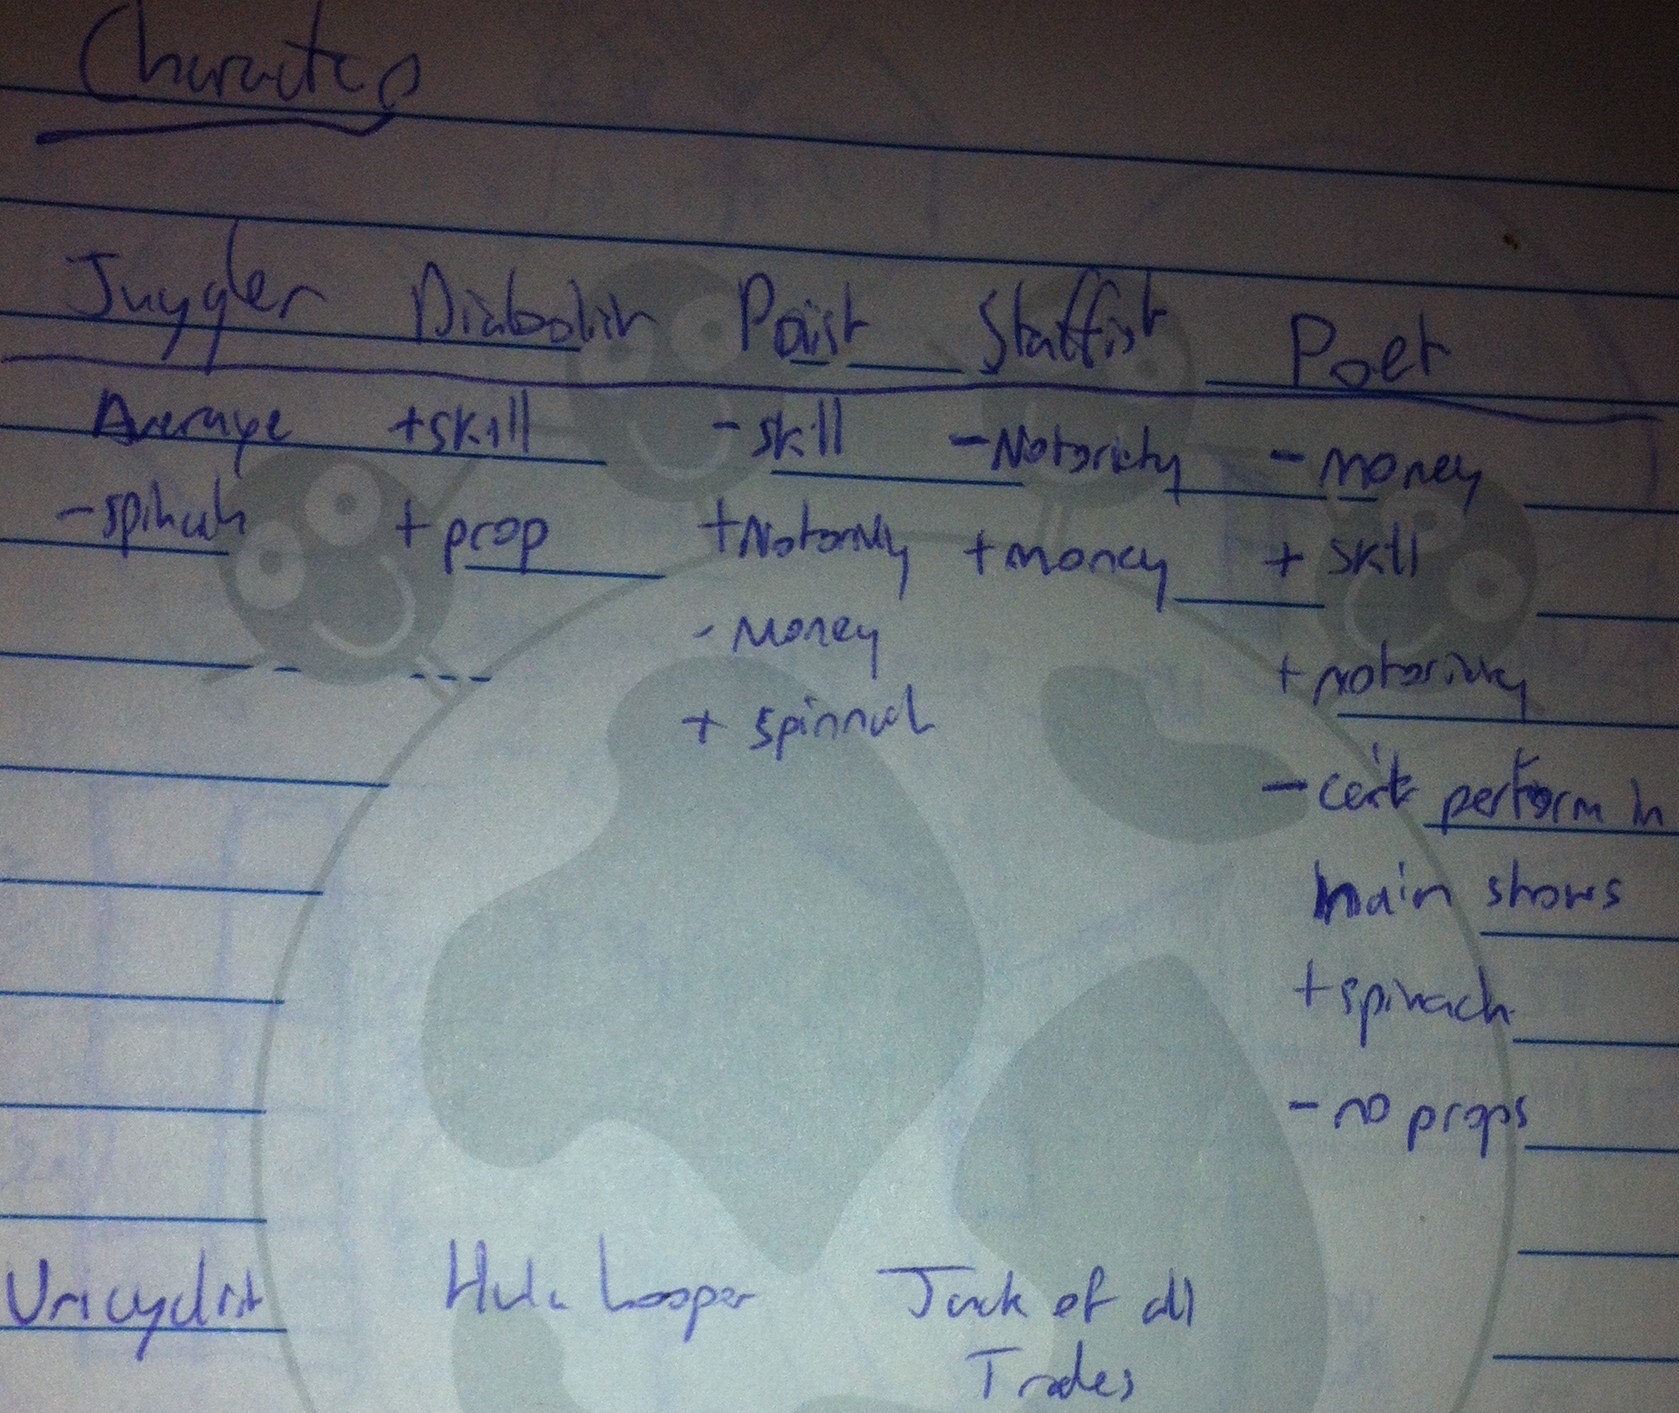 Characters
Juggler Diabolist Poist Staffist Poet
Average +skill -skill -Notoriety -money
-spinach +prop +Notoriety +money + skill
- Money + notoriety
+ spinach - can't perform in
main shows
+spinach
- no props
Unicyclist Hula hooper Jack of all
Trades